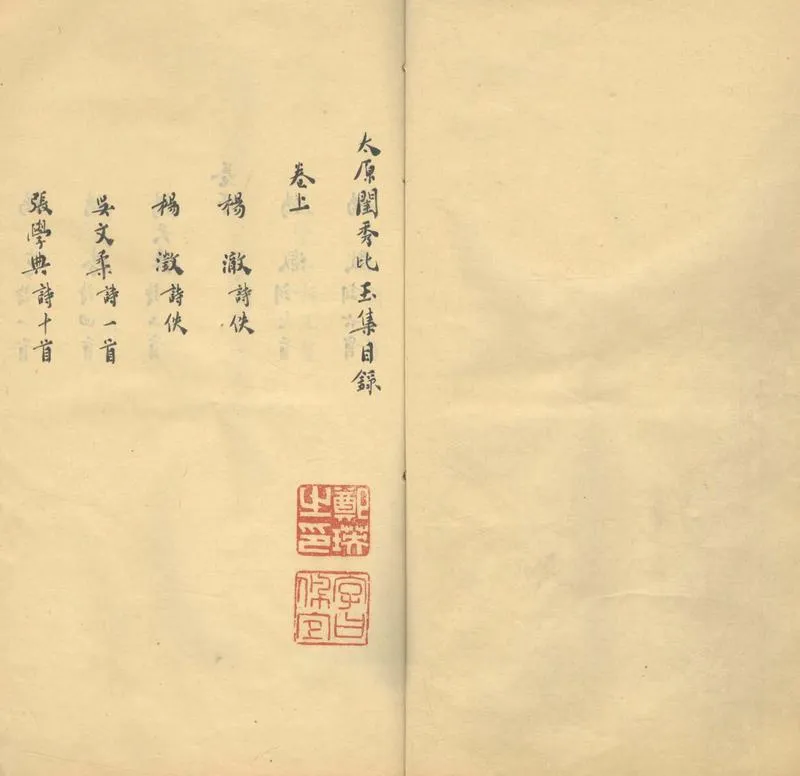 太原閨秀比玉集目錄
卷上
楊 澈詩佚
楊 澂詩佚
吳文柔詩一首
張學典詩十首
鄭瑛之印
字曰佩宜